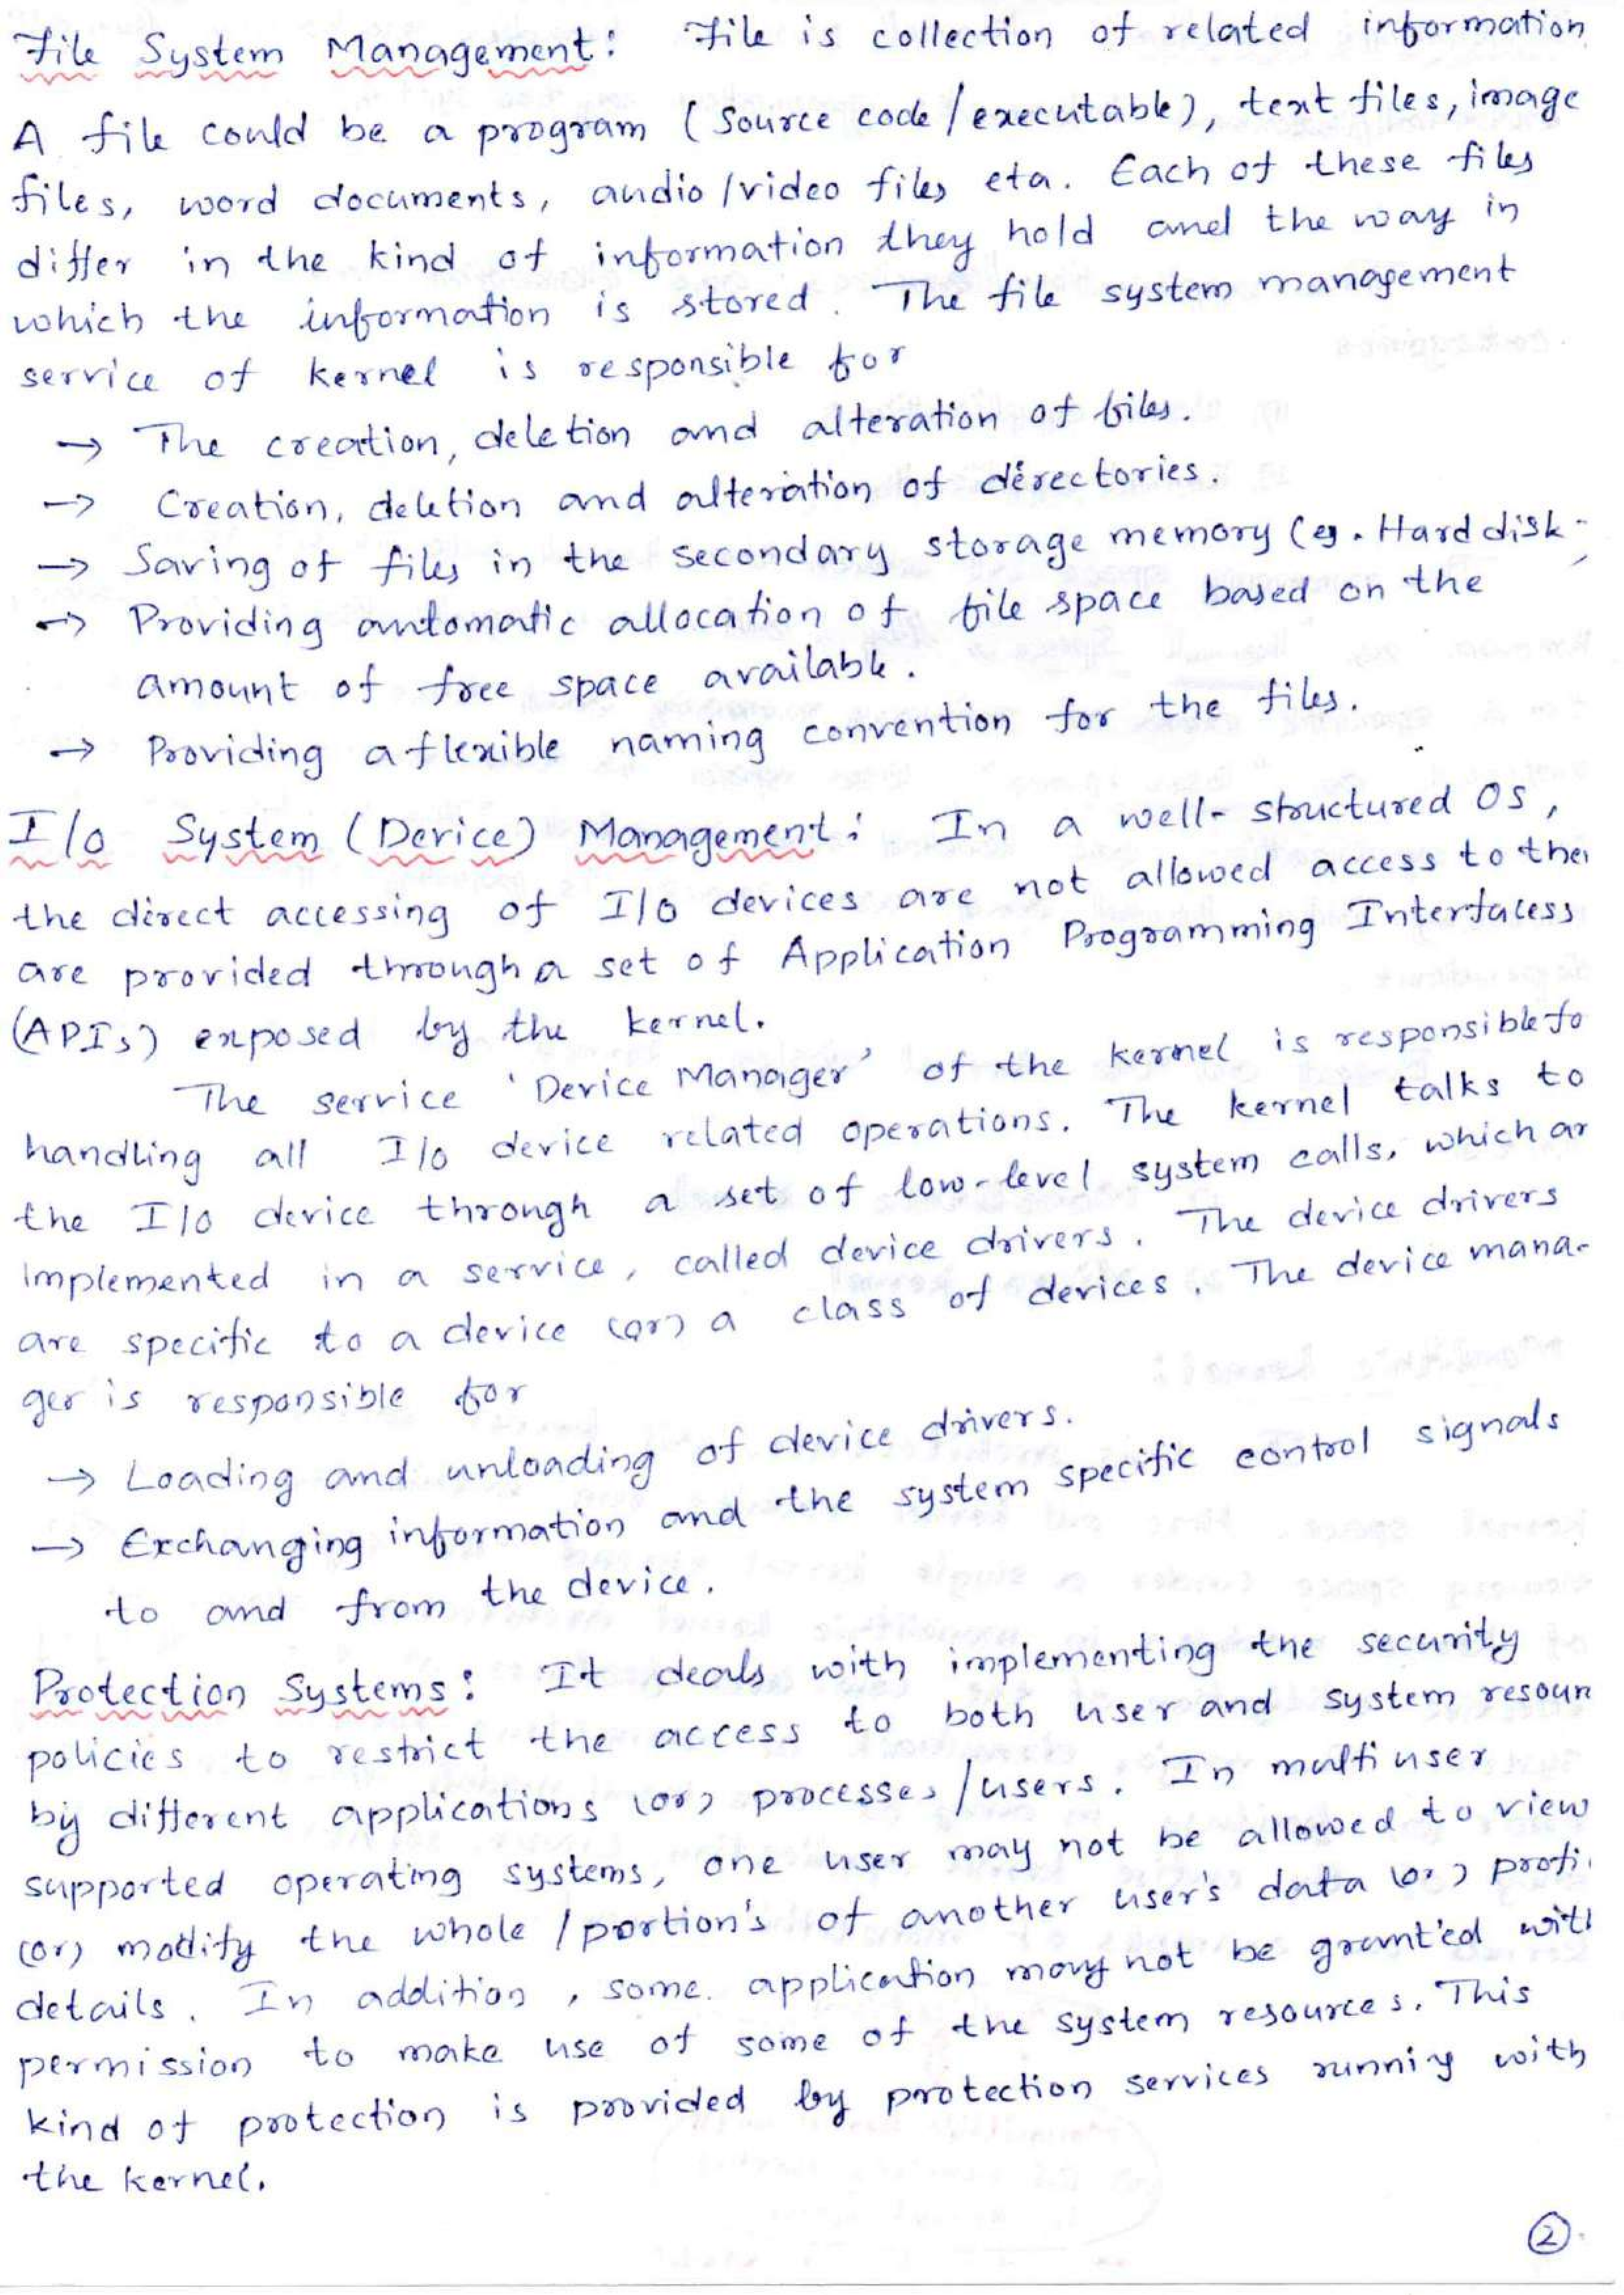 File System Management: File is collection of related information
A file could be a program (source code/executable), text files, image
files, word documents, audio/video files eta. Each of these files
differ in the kind of information they hold and the way in
which the information is stored. The file system management
service of kernel is responsible for
→ The creation, deletion and alteration of files.
→ Creation, deletion and alteration of directories.
→ Saving of files in the secondary storage memory (eg. Hard disk
→ Providing automatic allocation of file space based on the
amount of free space available.
→ Providing a flexible naming convention for the files.
I/O System (Device) Management: In a well-structured OS,
the direct accessing of I/O devices are not allowed access to the
are provided through a set of Application Programming Interfacess
(APIs) exposed by the kernel.
The service 'Device Manager' of the kernel is responsible fo
handling all I/o device related operations. The kernel talks to
the I/o device through a set of low-level system calls, which ar
implemented in a service, called device drivers. The device drivers
are specific to a device (or) a class of devices. The device mana-
ger is responsible for
→ Loading and unloading of device drivers.
→ Exchanging information and the system specific control signals
to and from the device.
Protection Systems: It deals with implementing the security
policies to restrict the access to both user and system resour
by different applications (or) processes/users. In multi user
supported operating systems, one user may not be allowed to view
(or) modify the whole/portion's of another user's data (or) profi
details. In addition, some application may not be grant'ed wit
permission to make use of some of the system resources. This
kind of protection is provided by protection services runniy with
the kernel.
2